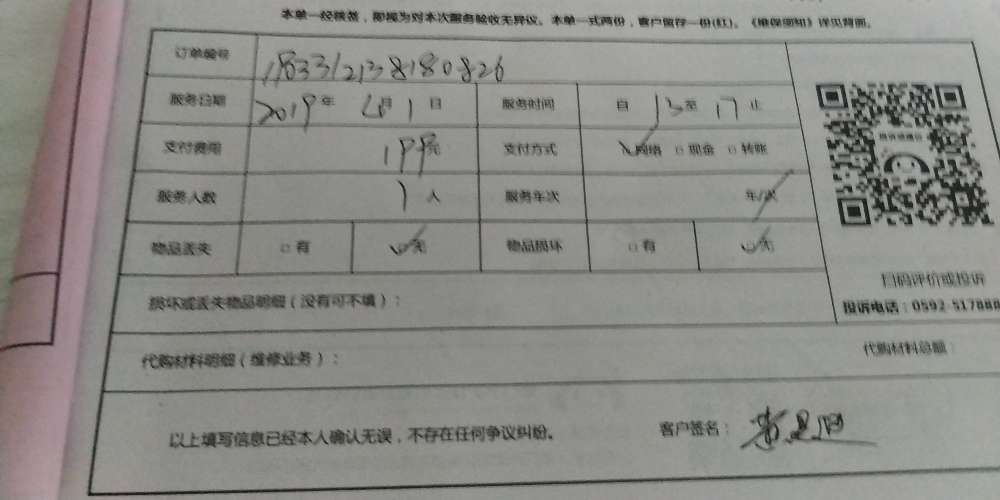 本单一经核签，即视为对本次服务验收无异议。本单一式两份，客户留存一份(红)。《维保须知》详见背面。
订单编号
服务日期 2019年 6月1日 服务时间 自 13 至 17 止
支付费用 199元 支付方式 网络 □现金 □转账
服务人数 1人 服务车次 车/次
物品丢失 □有 无 物品损坏 □有 无
扫码评价或投诉
损坏或丢失物品明细（没有可不填）：
投诉电话：0592-517888
代购材料明细（维修业务）：
代购材料总额：
以上填写信息已经本人确认无误，不存在任何争议纠纷。
客户签名：